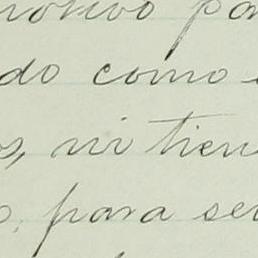 motivo pa
do como
s, ni tien
para se